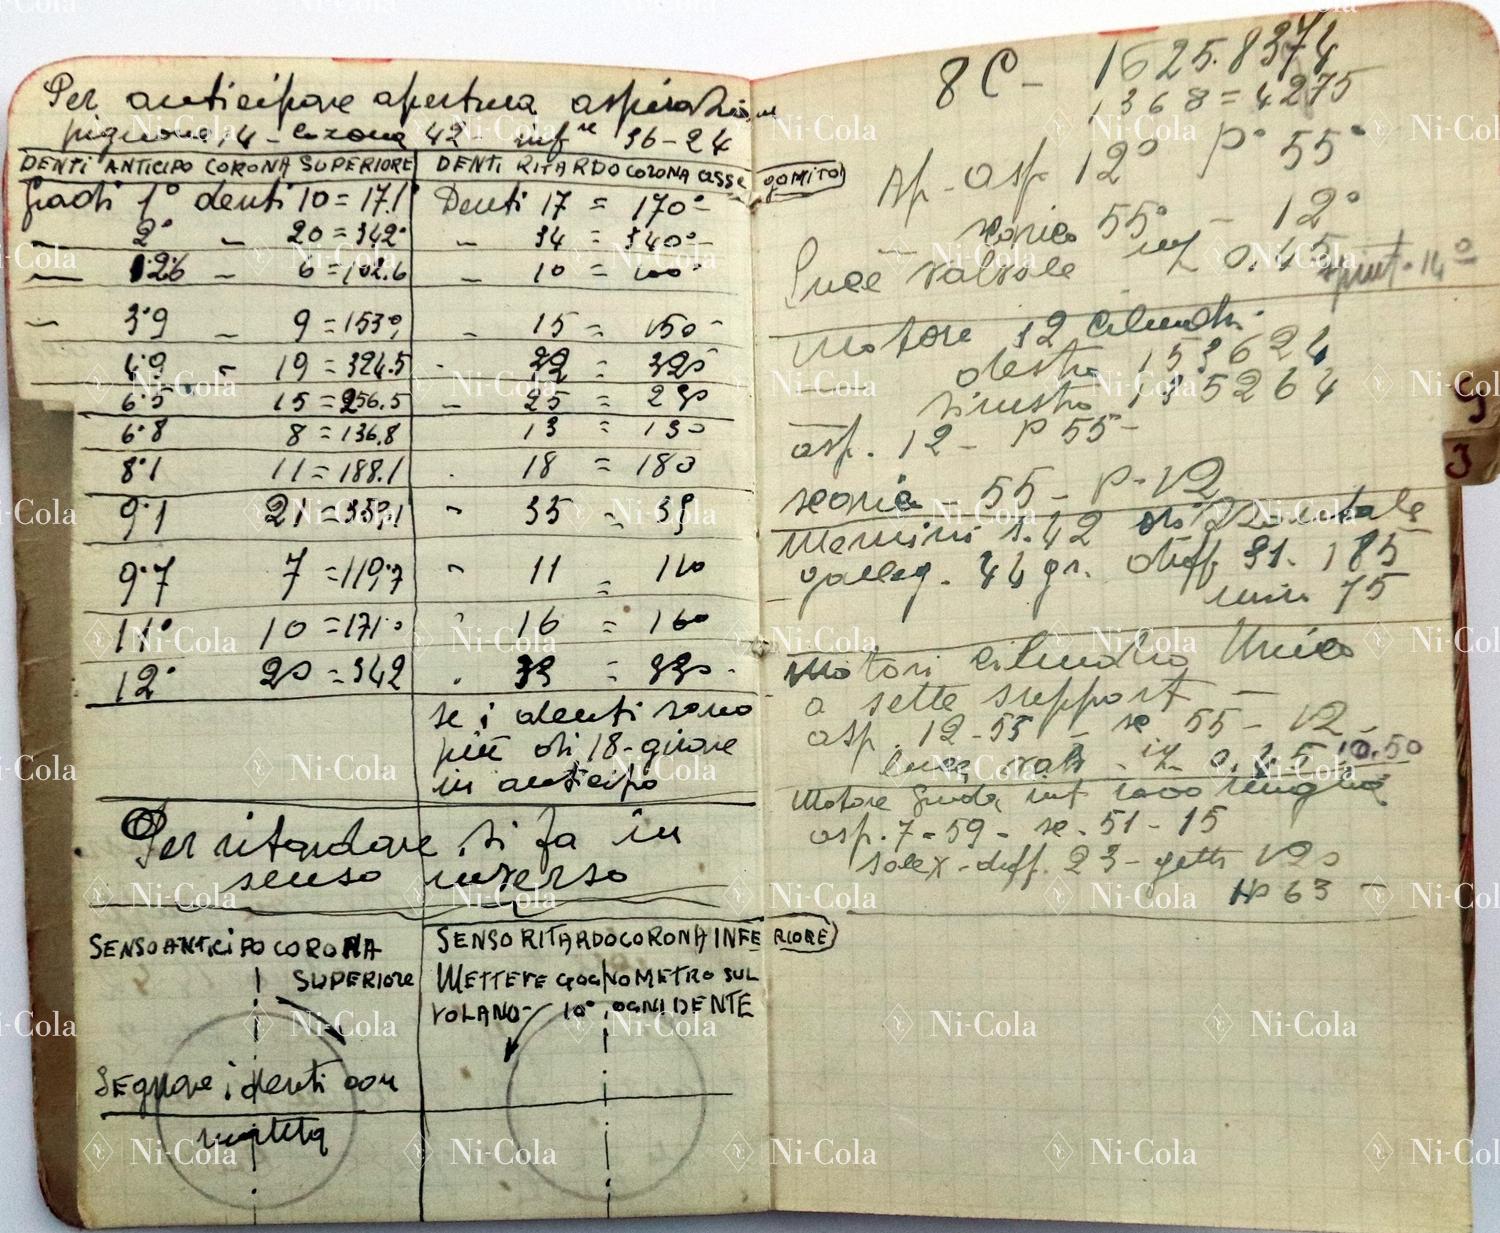 Per anticipare apertura aspirazione
pignone 14 - corona 42 - infre 36-24
DENTI ANTICIPO CORONA SUPERIORE
DENTI RITARDO CORONA asse GOMITO
Gradi 1° denti 10 = 17.1°
Denti 17 = 170°
2° 20 = 342°
34 = 340°
1.26 6 = 102.6
10 = 100°
3°9 9 = 153°,
15 = 150
4.9 19 = 324.5
6°5 15 = 256.5
25 =
6°8 8 = 136.8
13 = 130
8°1 11 = 188.1
18 = 180
9°1 21 = 359,1
35 = 35
9°7 7 = 119°7
11 = 110
11° 10 = 171°
16 = 160
12° 20 = 342
se i denti sono
più di 18 - girare
in anticipo
Per ritardare si fa in
senso inverso
SENSO ANTICIPO CORONA
SUPERIORE
SENSO RITARDO CORONA INFERIORE
METTERE GOGNOMETRO SUL
VOLANO - 10° OGNI DENTE
Segnare i denti con
matita
8C - 1625.8374
1368 = 4275
Ap - asp. 12° P° 55°
scarico 55° - 12°
Luce valvole
Motore 12 cilindri
destro 153624
sinistro 135264
asp. 12 - P 55 -
scarico 55 - P - 12
Memini s.42 orizzontale
galleg. 44 gr. diff. 31. 185
min 75
Motori cilindro Unico
a sette support -
asp. 12-55 - sc 55 - 12 -
luce valv. 10.50
Motore Giulia
asp. 7-59 - sc. 51-15
solex - diff. 23 - getti 120
HP 63 -
Ni-Cola